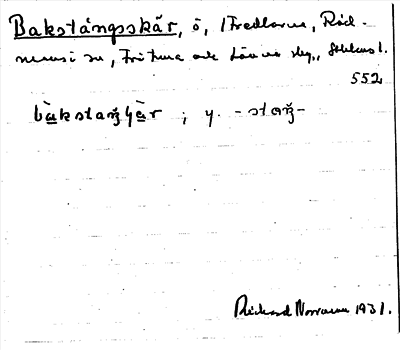 Bakstångsskär, ö, i Fredlarna, Råd-
mansö sn, Frötuna och Länna skg., Sthlms l.
552
bàkstaŋʂɧæ̀r ; y. -stɑŋʂ-
Rickard Norrman 1931.